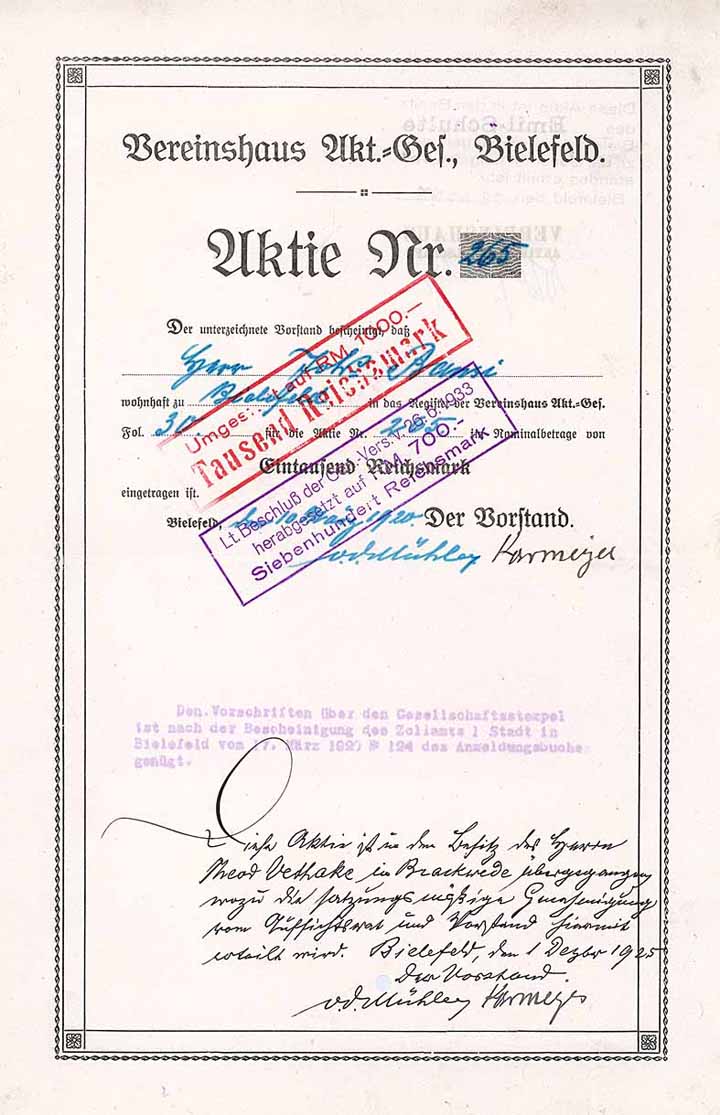 Vereinshaus Akt.-Ges., Bielefeld.
Aktie Nr. 265
Der unterzeichnete Vorstand bescheinigt, daß
Herr
wohnhaft zu Bielefeld in das Register der Vereinshaus Akt.-Ges.
Fol. 30. für die Aktie Nr. 265 im Nominalbetrage von
Eintausend Reichsmark
eingetragen ist.
Bielefeld, den 10. 1920. Der Vorstand.
v.d.Mühlen Karmeyer
Umgest. auf RM. 1000.—
Tausend Reichsmark
Lt. Beschluß der Gen.-Vers. v. 26.6.1933
herabgesetzt auf RM 700.-
Siebenhundert Reichsmark
Den Vorschriften über den Gesellschaftsstempel
ist nach der Bescheinigung des Zollamts 1 Stadt in
Bielefeld vom 17. März 192 № 124 des Anmeldungsbuches
genügt.
Diese Aktie ist in den Besitz des Herrn
Theod Vethake in Brackwede übergegangen
wozu die satzungsmäßige Genehmigung
vom Aufsichtsrat und Vorstand hiermit
erteilt wird. Bielefeld, den 1 Dezbr 1925
Der Vorstand.
v.d.Mühlen Karmeyer
Emil Schulte